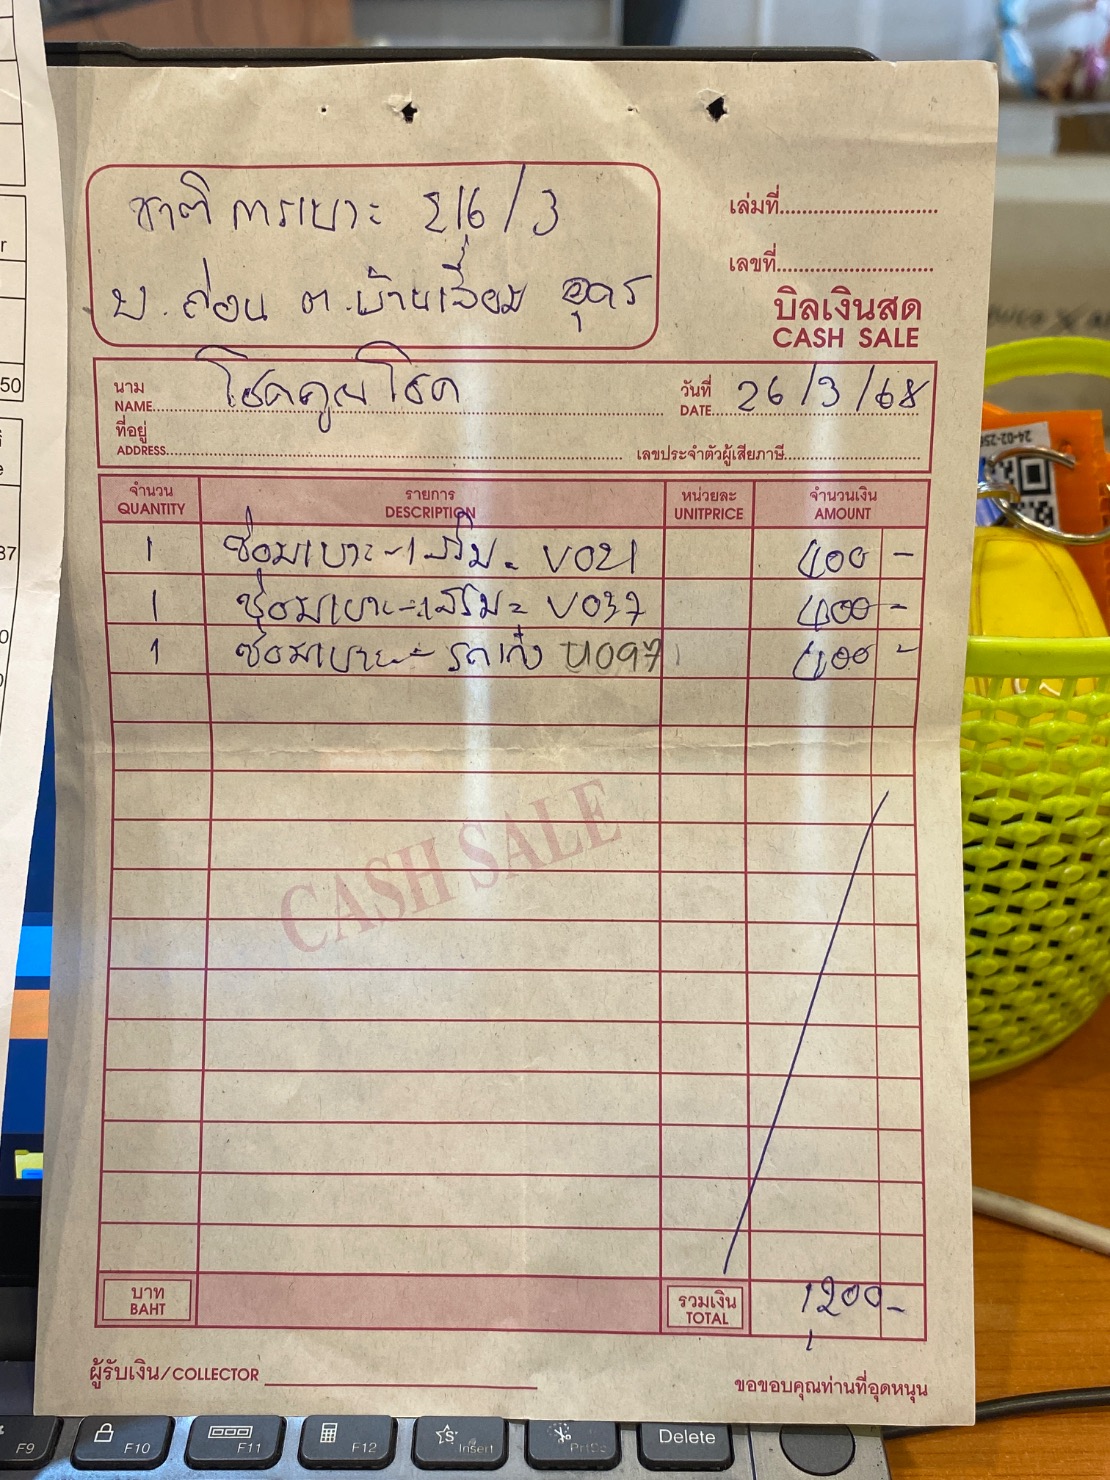 ชาติการเบาะ 216/3
บ.ถ่อน ต.บ้านเลื่อม อุดร
เล่มที่
เลขที่
บิลเงินสด
CASH SALE
นาม
NAME โชคคูณโชค
วันที่
DATE 26/3/68
ที่อยู่
ADDRESS
เลขประจำตัวผู้เสียภาษี
จำนวน รายการ หน่วยละ จำนวนเงิน
QUANTITY DESCRIPTION UNITPRICE AMOUNT
1 ซ่อมเบาะ-เสริม= V021 400 -
1 ซ่อมเบาะ-เสริม= V037 400 -
1 ซ่อมเบาะ- รถเก๋ง U097 400 -
CASH SALE
บาท
BAHT
รวมเงิน
TOTAL 1,200 -
ผู้รับเงิน/COLLECTOR
ขอขอบคุณท่านที่อุดหนุน
F9 F10 F11 F12 Insert PrtSc Delete
24-02-256
50
37